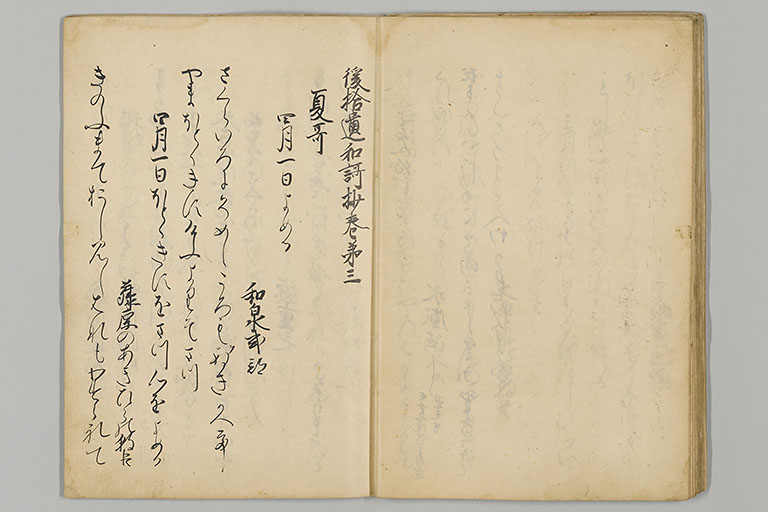 後拾遺和謌抄巻第三
夏哥
四月一日よめる
和泉式部
さくらいろにそめしころもをぬきかへて
やまほとゝきすけふよりそまつ
四月一日ほとゝきすをまつ心をよめる
藤原のあきひらの朝臣
きのふまておしみしはなもわすられて